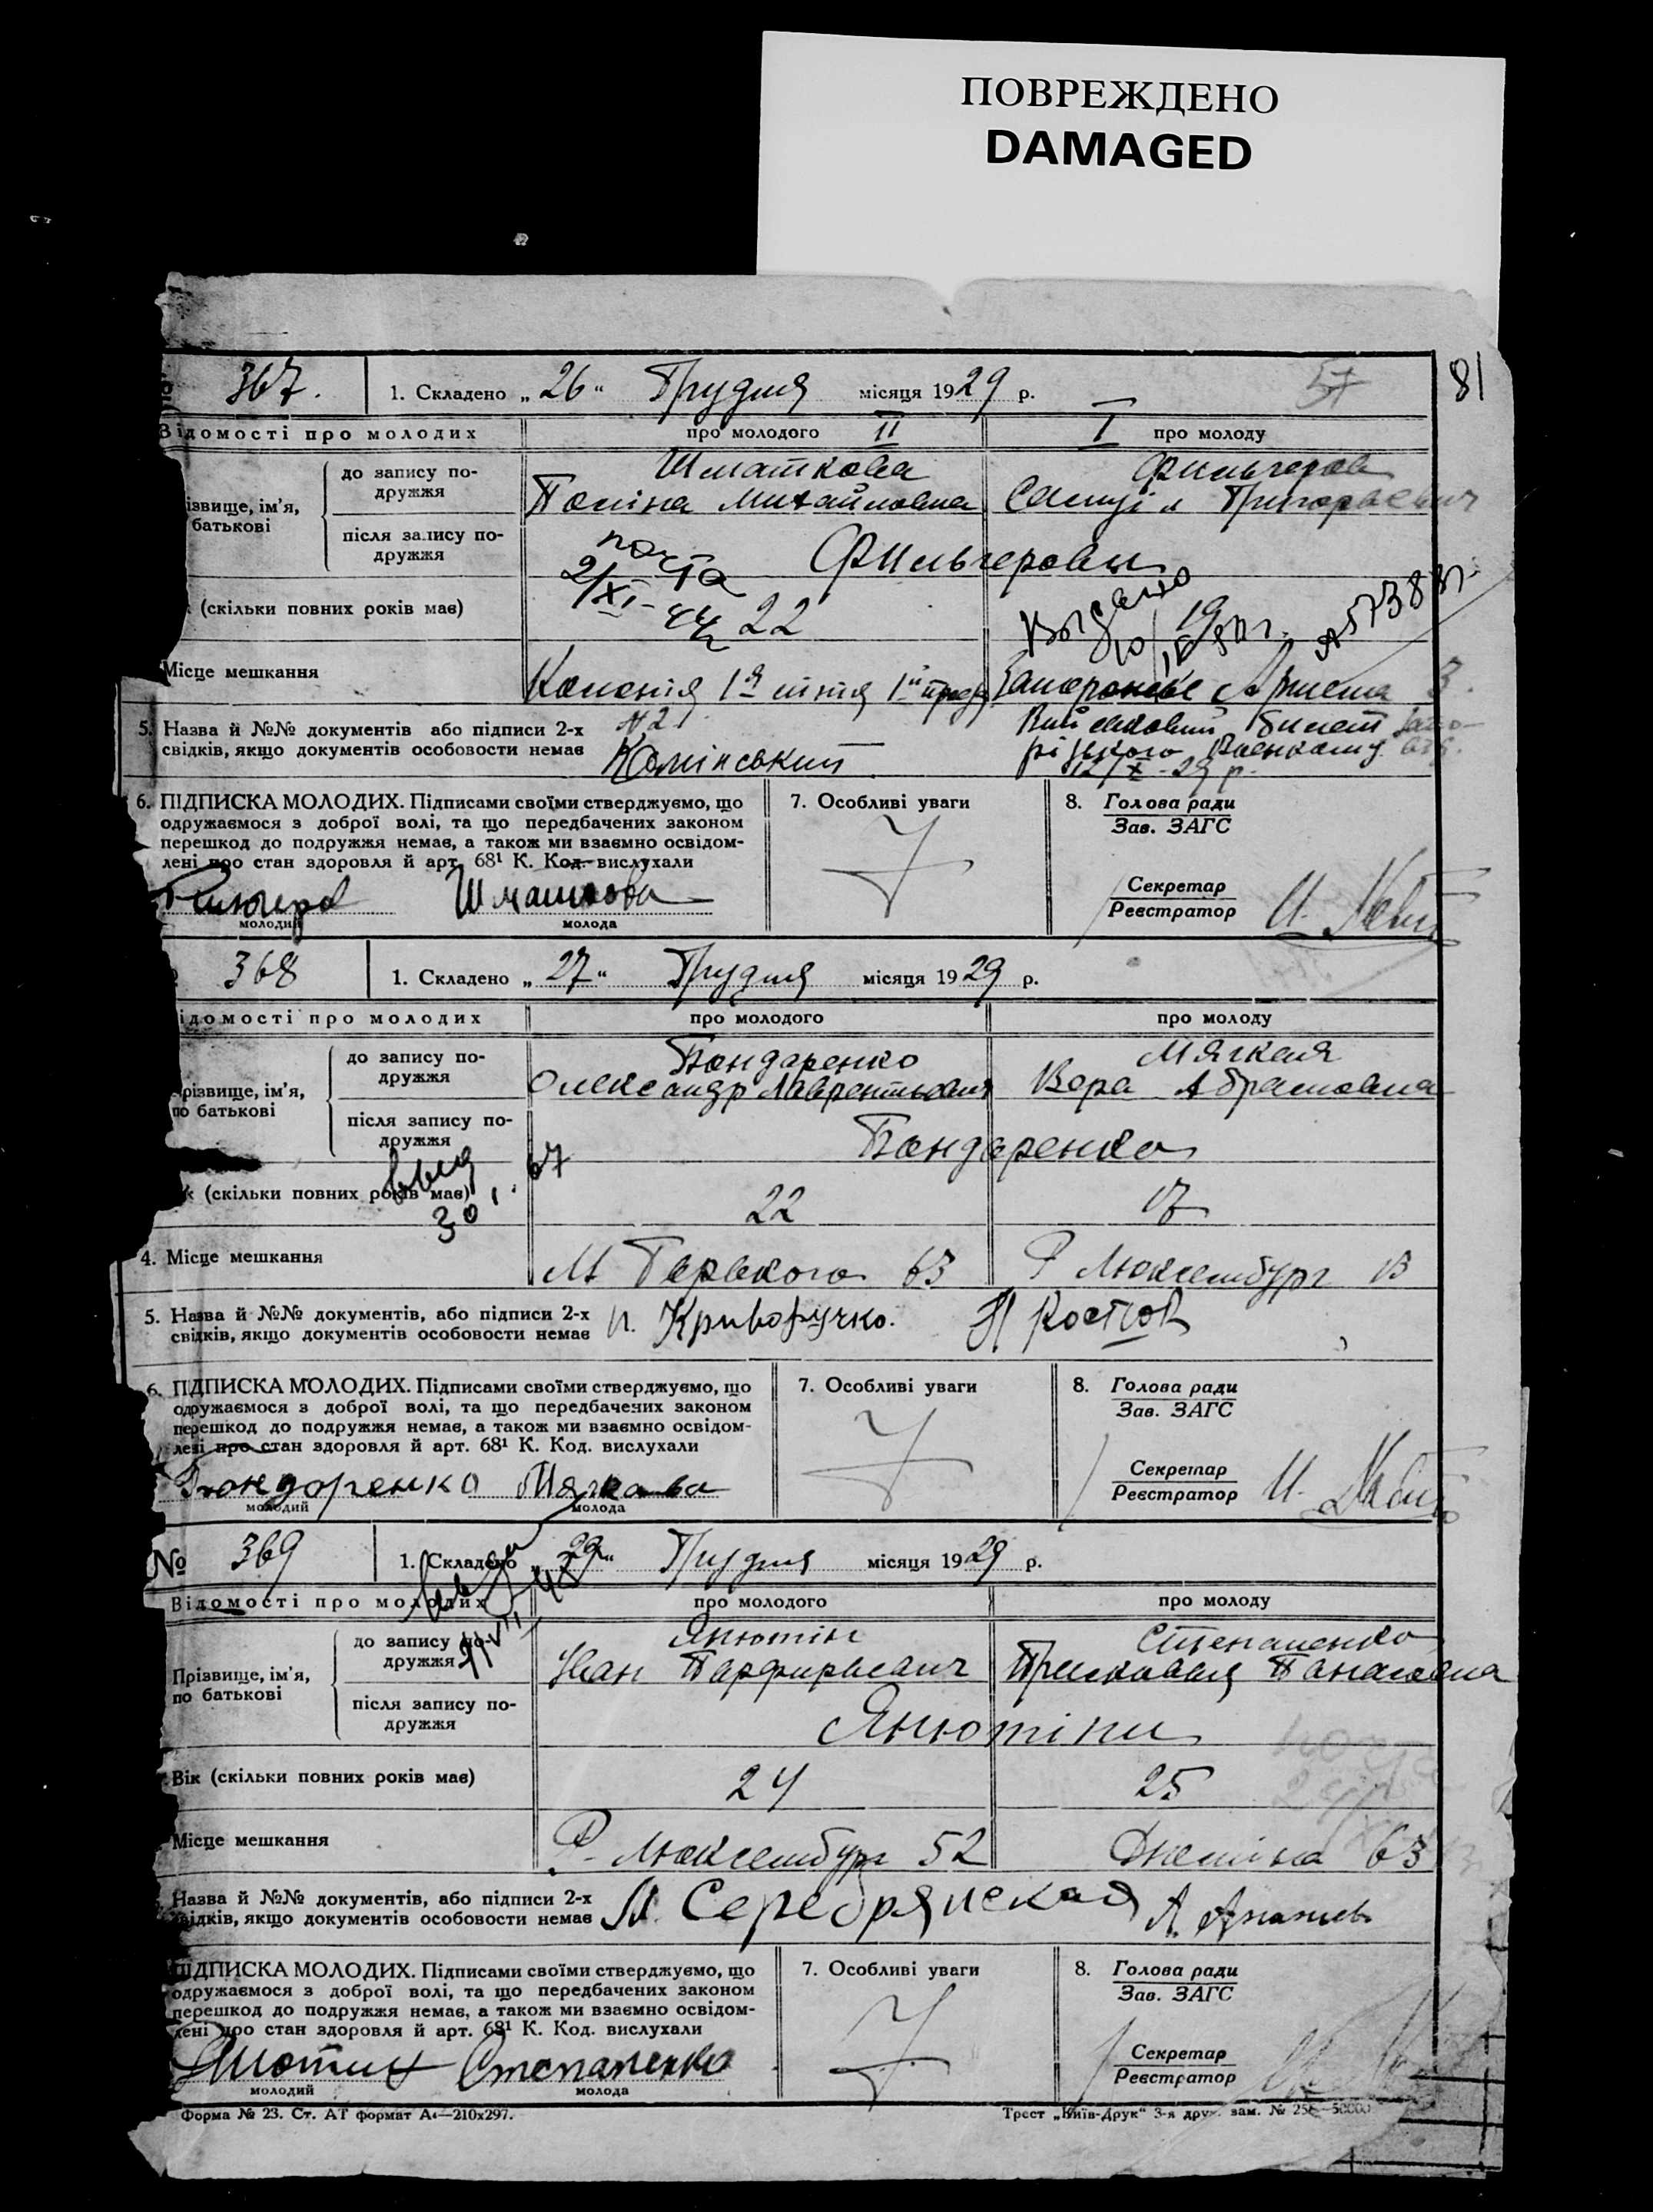 ПОВРЕЖДЕНО
DAMAGED
81
367. 1. Складено „26“ Грудня місяця 1929 р. 57
Відомості про молодих про молодого II I про молоду
до запису подружжя
Шматкова
Поліна Михайловна
Фильчеров
Самуіл Григорьевич
ізвище, ім'я,
батькові
після запису подружжя
Фильчеровы
почта
2/XI-44
(скільки повних років має) 22
Выдано
19
А 57383
Місце мешкання
Колонія 1я лінія
5. Назва й №№ документів або підписи 2-х
свідків, якщо документів особовости немає
№ 2
Камінський
12/X-29 р.
6. ПІДПИСКА МОЛОДИХ. Підписами своїми стверджуємо, що
одружаємося з доброї волі, та що передбачених законом
перешкод до подружжя немає, а також ми взаємно освідом-
лені про стан здоровля й арт. 68¹ К. Код. вислухали
Шматкова
молодий молода
7. Особливі уваги
8. Голова ради
Зав. ЗАГС
Секретар
Реєстратор
368 1. Складено „27“ Грудня місяця 1929 р.
ідомості про молодих про молодого про молоду
до запису по-
дружжя
Бондаренко
Олександр Лаврентьевич
Мягкая
Вера Абрамовна
різвище, ім'я,
по батькові
після запису по-
дружжя
Бондаренко
67
30
к (скільки повних років має) 22 17
4. Місце мешкання М Горького 63 Р Люксембург 13
5. Назва й №№ документів, або підписи 2-х
свідків, якщо документів особовости немає
П. Криворучко. Н Костюк
6. ПІДПИСКА МОЛОДИХ. Підписами своїми стверджуємо, що
одружаємося з доброї волі, та що передбачених законом
перешкод до подружжя немає, а також ми взаємно освідом-
лені про стан здоровля й арт. 68¹ К. Код. вислухали
Бондоренко Мягкова
молодий молода
7. Особливі уваги
8. Голова ради
Зав. ЗАГС
Секретар
Реєстратор
№ 369 1. Складено „29“ Грудня місяця 1929 р.
Відомості про молодих про молодого про молоду
до запису по-
дружжя
Янютін
Іван Парфирьевич
Степаненко
Присковея Панасовна
Прізвище, ім'я,
по батькові
після запису по-
дружжя
Янютіни
Вік (скільки повних років має) 24 25
Місце мешкання Р. Люксембург 52 63
Назва й №№ документів, або підписи 2-х
свідків, якщо документів особовости немає
М. Серебрянская А. Ананьев
ПІДПИСКА МОЛОДИХ. Підписами своїми стверджуємо, що
одружаємося з доброї волі, та що передбачених законом
перешкод до подружжя немає, а також ми взаємно освідом-
лені про стан здоровля й арт. 68¹ К. Код. вислухали
Янютин Степаненко
молодий молода
7. Особливі уваги
8. Голова ради
Зав. ЗАГС
Секретар
Реєстратор
Форма № 23. Ст. АТ формат А4—210х297.
Трест „Київ-Друк“ 3-я друк. зам. №